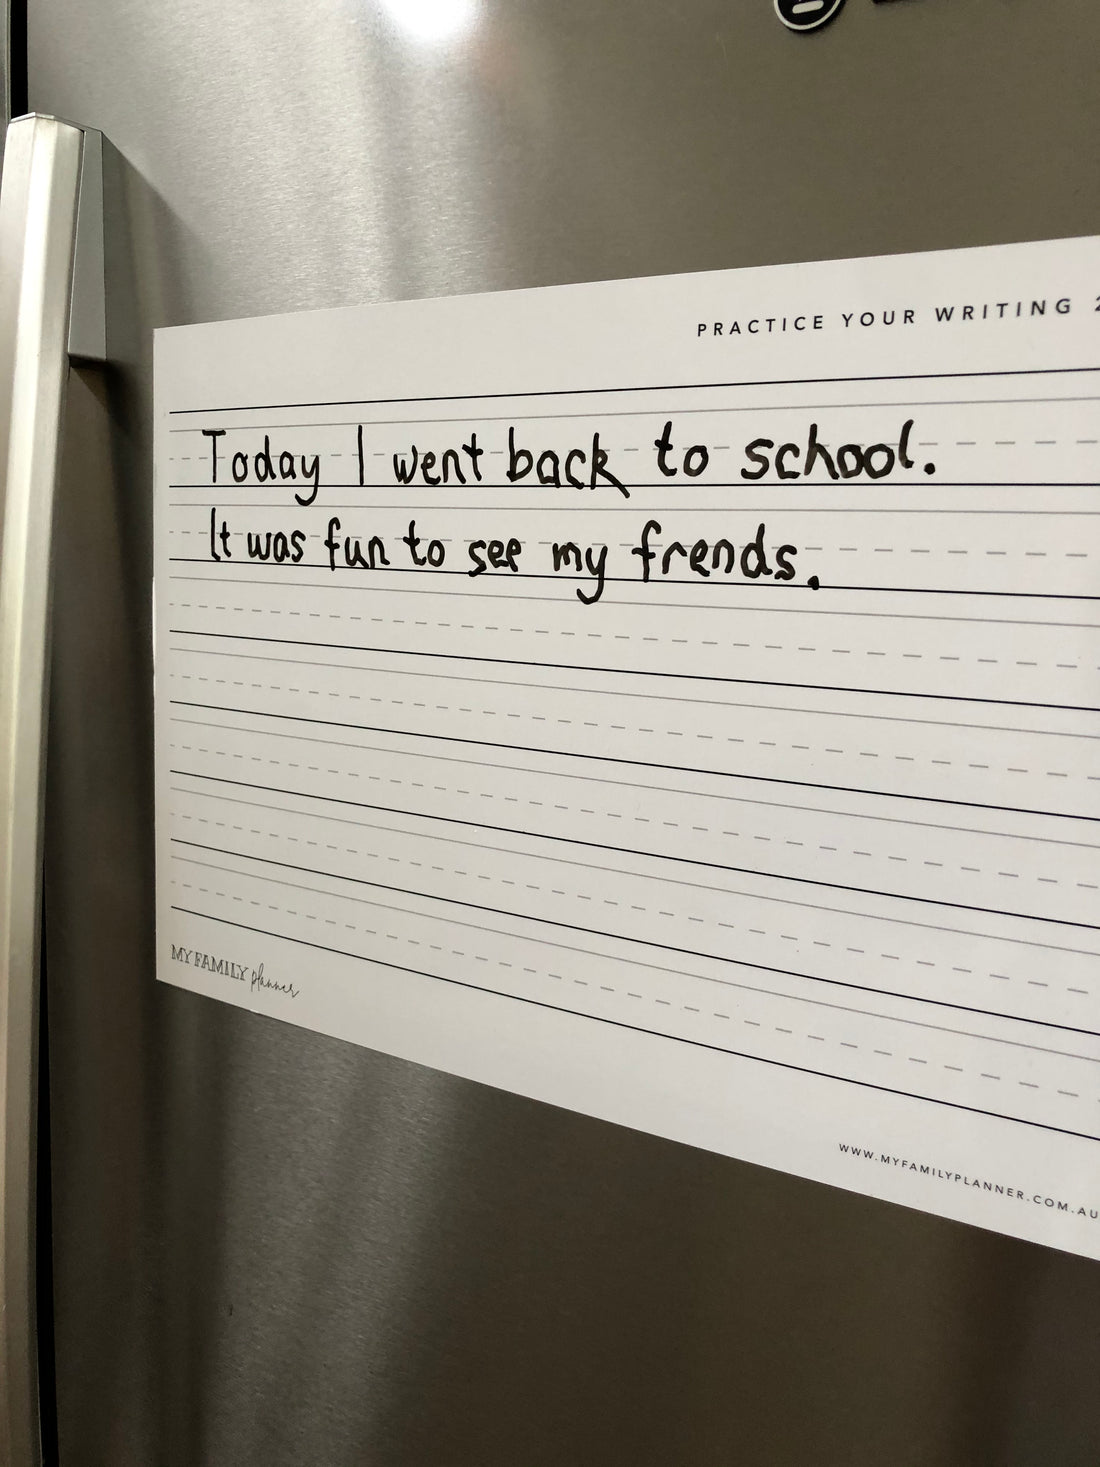 PRACTICE YOUR WRITING
Today I went back to school.
It was fun to see my frends.
MY FAMILY planner
WWW.MYFAMILYPLANNER.COM.AU